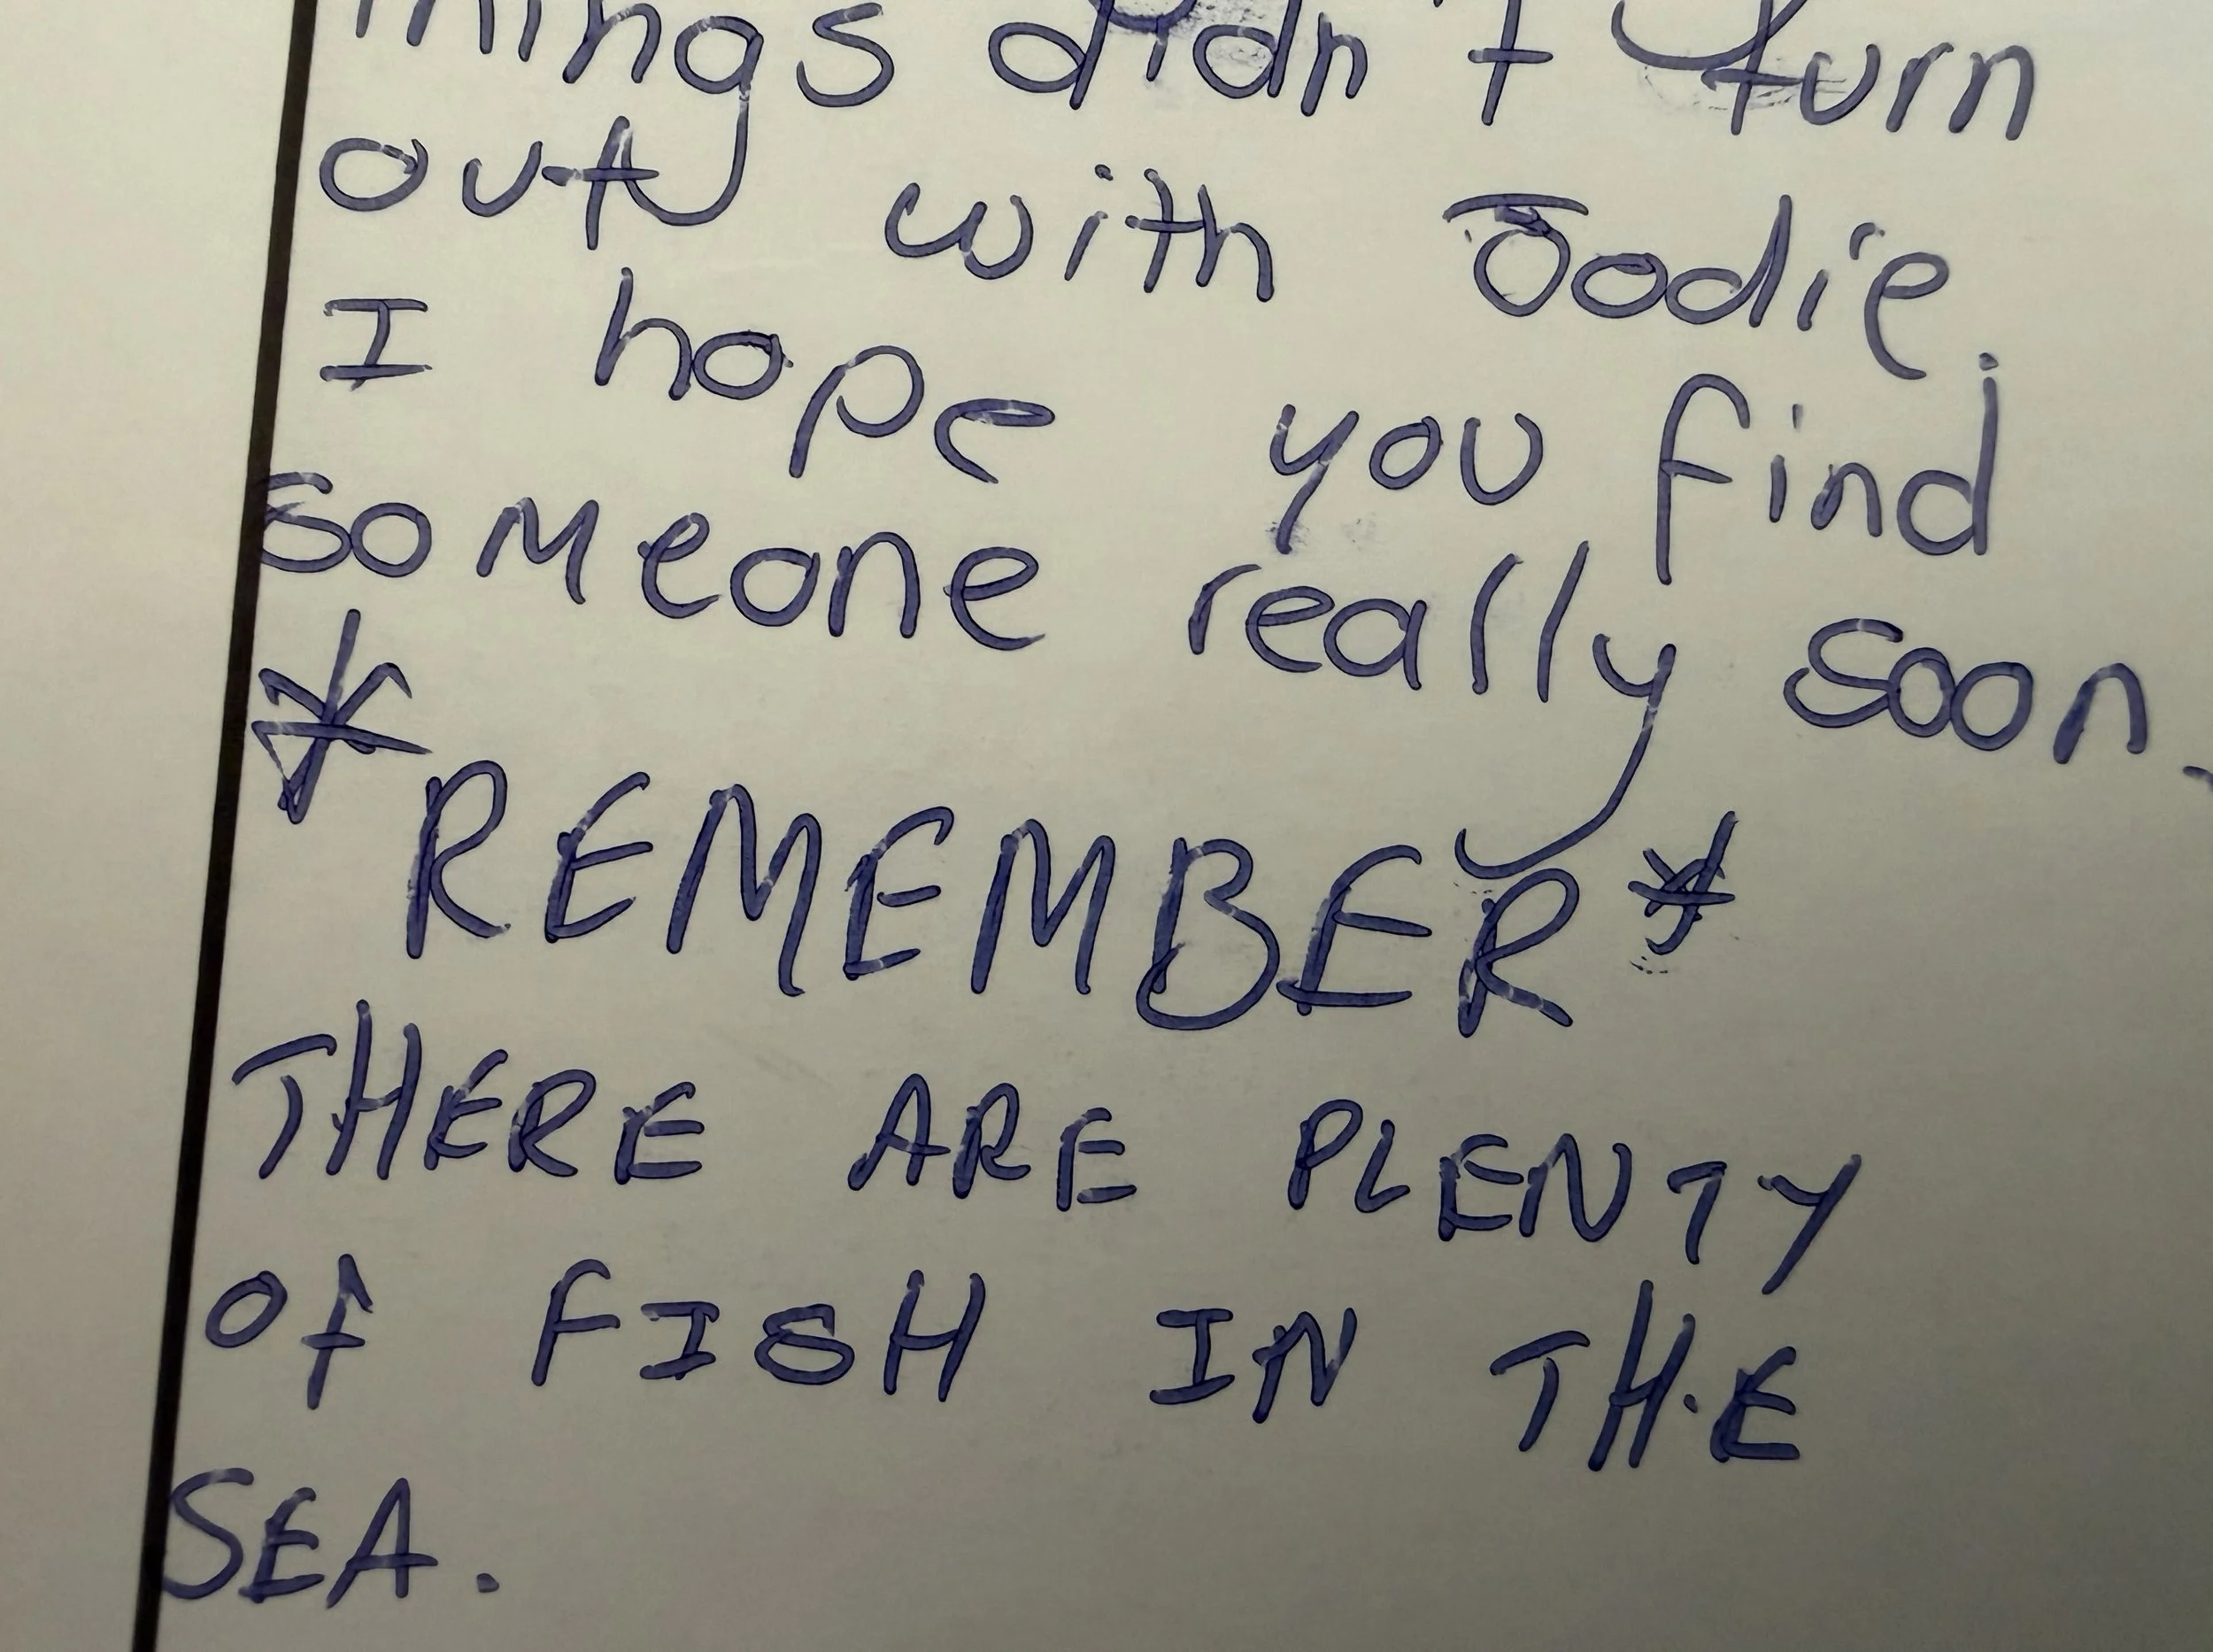 things didn't turn
out with Jodie.
I hope you find
someone really soon.
*REMEMBER*
THERE ARE PLENTY
Of FISH IN THE
SEA.